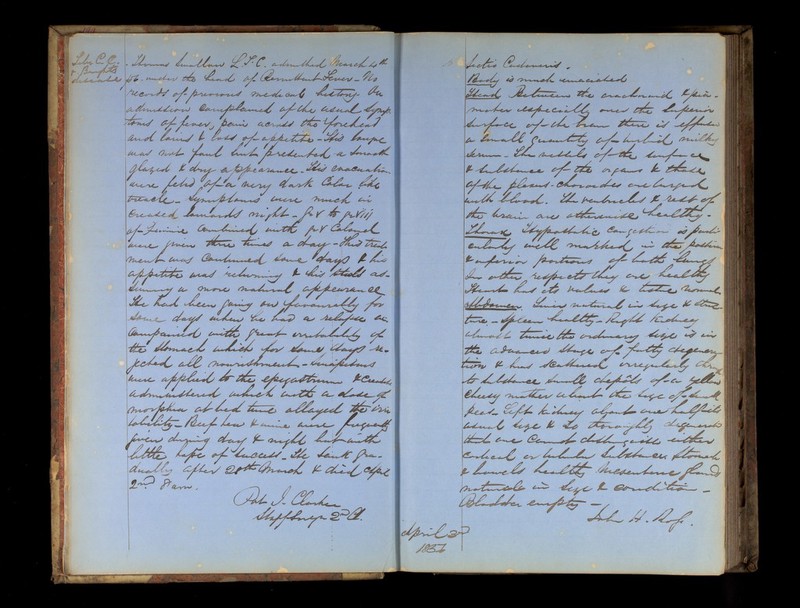 Thomas Smullen L.T.C. admitted March 4th
56. under the head of Remittent Fever - No
records of previous medical history. On
admission complained of the usual symp-
toms of fever, pain across the forehead
and loins & loss of appetite - His tongue
was not foul but presented a smooth
glazed & dry appearance - His evacuations
were fetid of a very dark color like
treacle - Symptoms were much in
creased towards night - gr V to gr VIII
of Quinine combined with gr V Calomel
were given three times a day - This treat
ment was continued some days & his
appetite was returning & his stools as-
suming a more natural appearance
He had been going on favourably for
some days when he had a relapse ac
companied with great irritability of
the stomach which for some days re
jected all nourishment - Sinapisms
were applied to the epigastrium &
administered which with a dose of
morphia at bed time allayed the irri
tability - Beef tea & wine were frequently
given during day & night but with
little hope of success - He sank gra-
dually after 20th March & died April
2nd 8 am.
Rob J. Clarke
Staff Surgn 2nd Cl.
Sectio Cadaveris -
Body is much emaciated
Head Between the arachnoid & pia-
mater especially over the superior
surface of the brain there is effused
a small quantity of turbid milky
serum - The vessels of the surface
& substance of the organs & those
of the plexus choroides are enlarged
with blood. The ventricles & rest of
the brain are otherwise healthy -
Thorax Hypostatic congestion is parti
cularly well marked in the posterior
& inferior portions of both lungs
In other respects they are healthy
Heart has its valves & normal
Abdomen Liver natural in size & struc
ture - Spleen healthy - Right Kidney
almost twice the ordinary size is in
the advanced stage of fatty degenera
tion & has scattered irregularly
its substance small deposits of a yellow
cheesy matter about the size of
peas - Left kidney about one half its
usual size & so thoroughly degenerated
that one cannot distinguish either
cortical or tubular substance Stomach
& bowels healthy Mesenteric glands
natural in size & condition -
Bladder empty -
John H.
April 2nd
1856